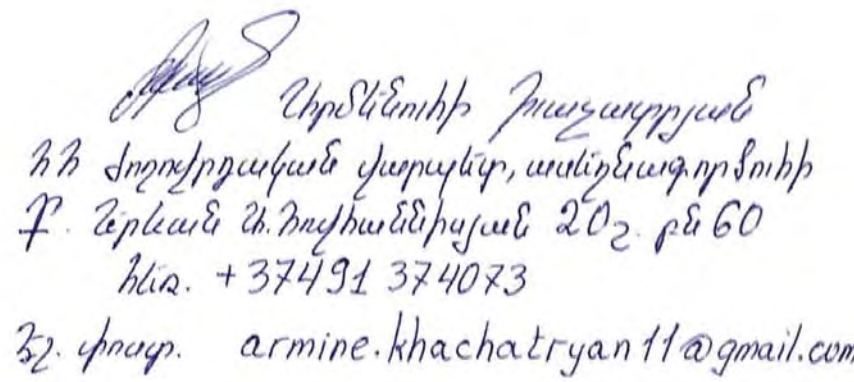 Արմենուհի Խաչատրյան
ՀՀ ժողովրդական վարպետ, ասեղնագործուհի
Ք. Երևան Ա. Հովհաննիսյան 20շ. բն 60
հեռ. +37491 374073
Էլ. փոստ. armine.khachatryan11@gmail.com